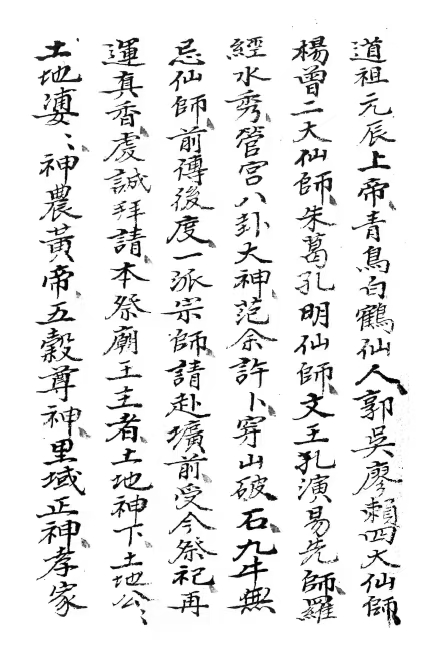 道祖元辰上帝青鳥白鶴仙人郭吳廖賴四大仙師
楊曾二大仙師朱葛孔明仙師文王孔演易先師羅
經水秀管宫八卦大神范余許卜穿山破石九牛無
忌仙師前傳後度一派宗師請赴壙前受今祭祀再
運真香虔誠拜請本祭廟王主者土地神下土地公〻
土地婆〻神農黃帝五穀尊神里域正神孝家